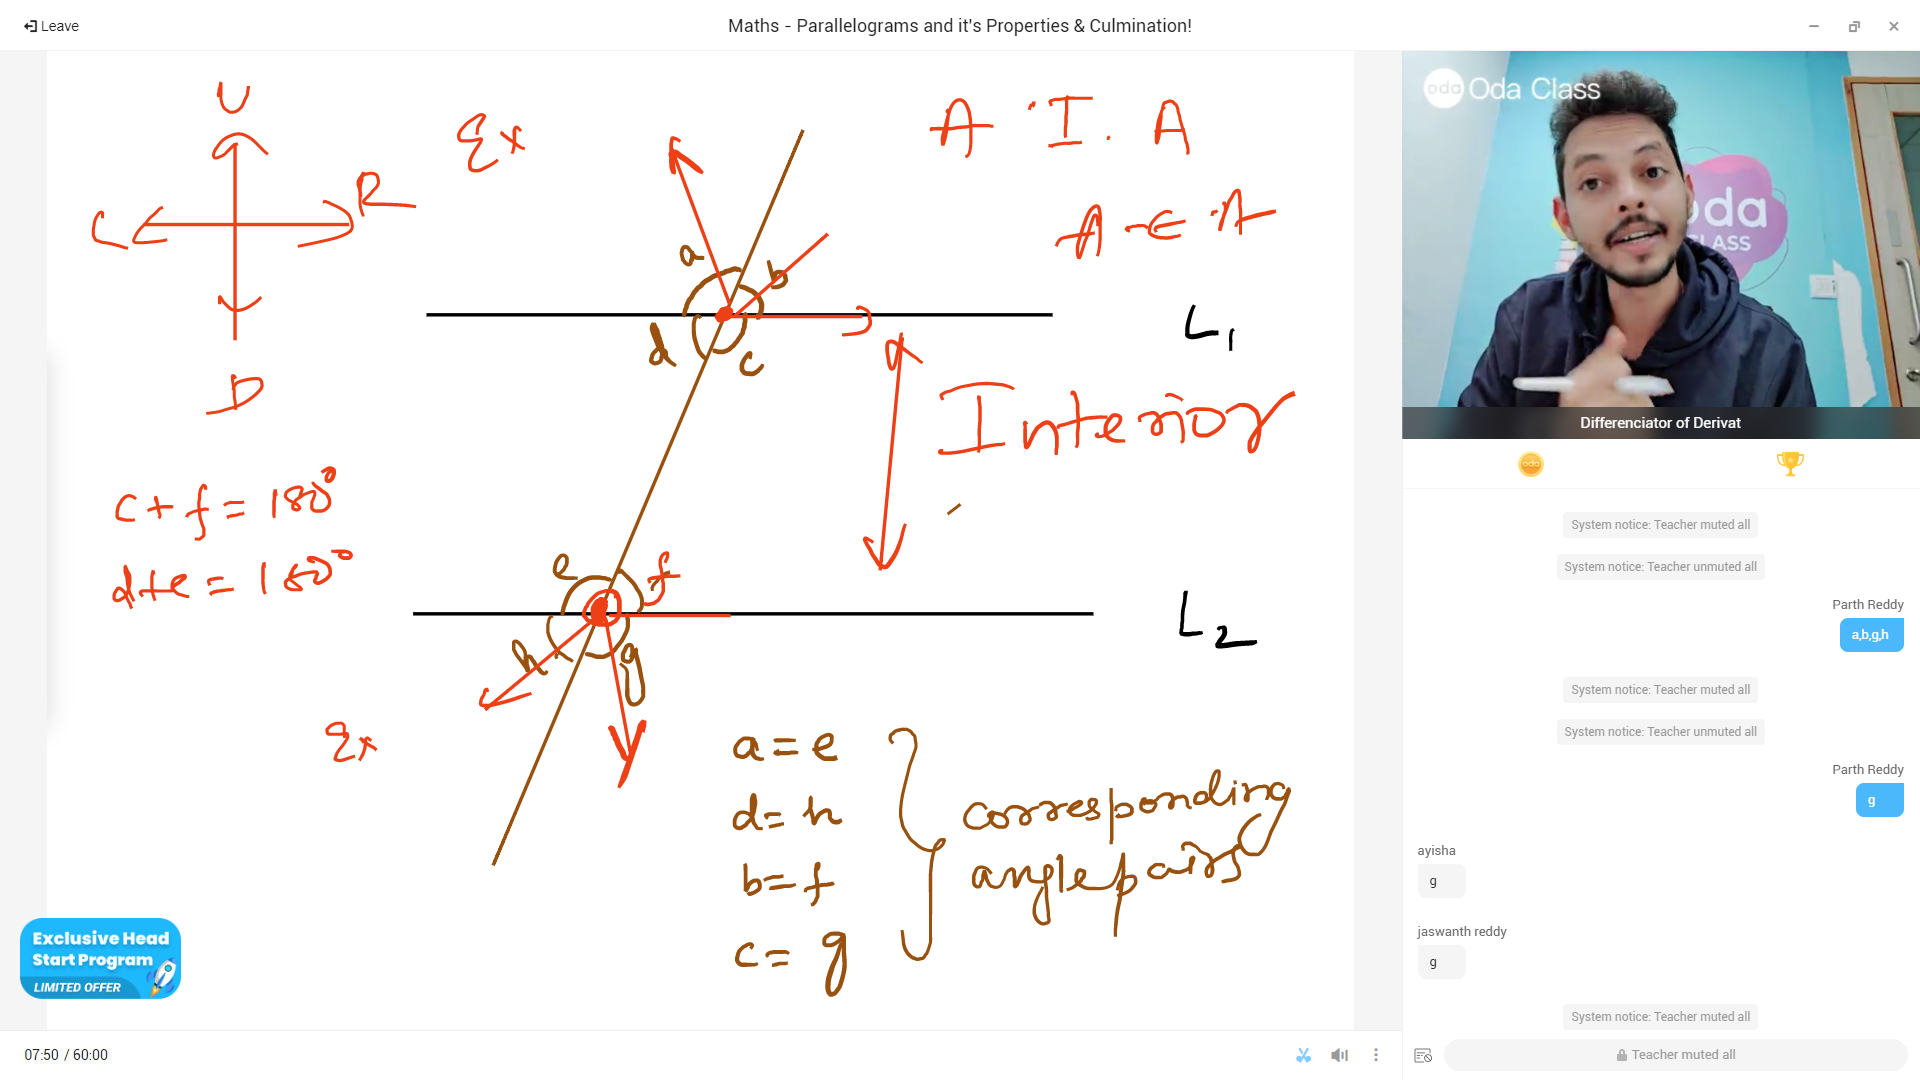 Leave
Maths - Parallelograms and it's Properties & Culmination!
U
R
L
D
Ex
A.I.A
A-E-A
a
b
d
c
L1
Interior
c+f=180°
d+e=180°
e
f
h
g
L2
Ex
a=e
d=h
b=f
c=g
corresponding
angle pairs
Exclusive Head
Start Program
LIMITED OFFER
07:50 / 60:00
oda Oda Class
oda
CLASS
Differenciator of Derivat
oda
System notice: Teacher muted all
System notice: Teacher unmuted all
Parth Reddy
a,b,g,h
System notice: Teacher muted all
System notice: Teacher unmuted all
Parth Reddy
g
ayisha
g
jaswanth reddy
g
System notice: Teacher muted all
Teacher muted all